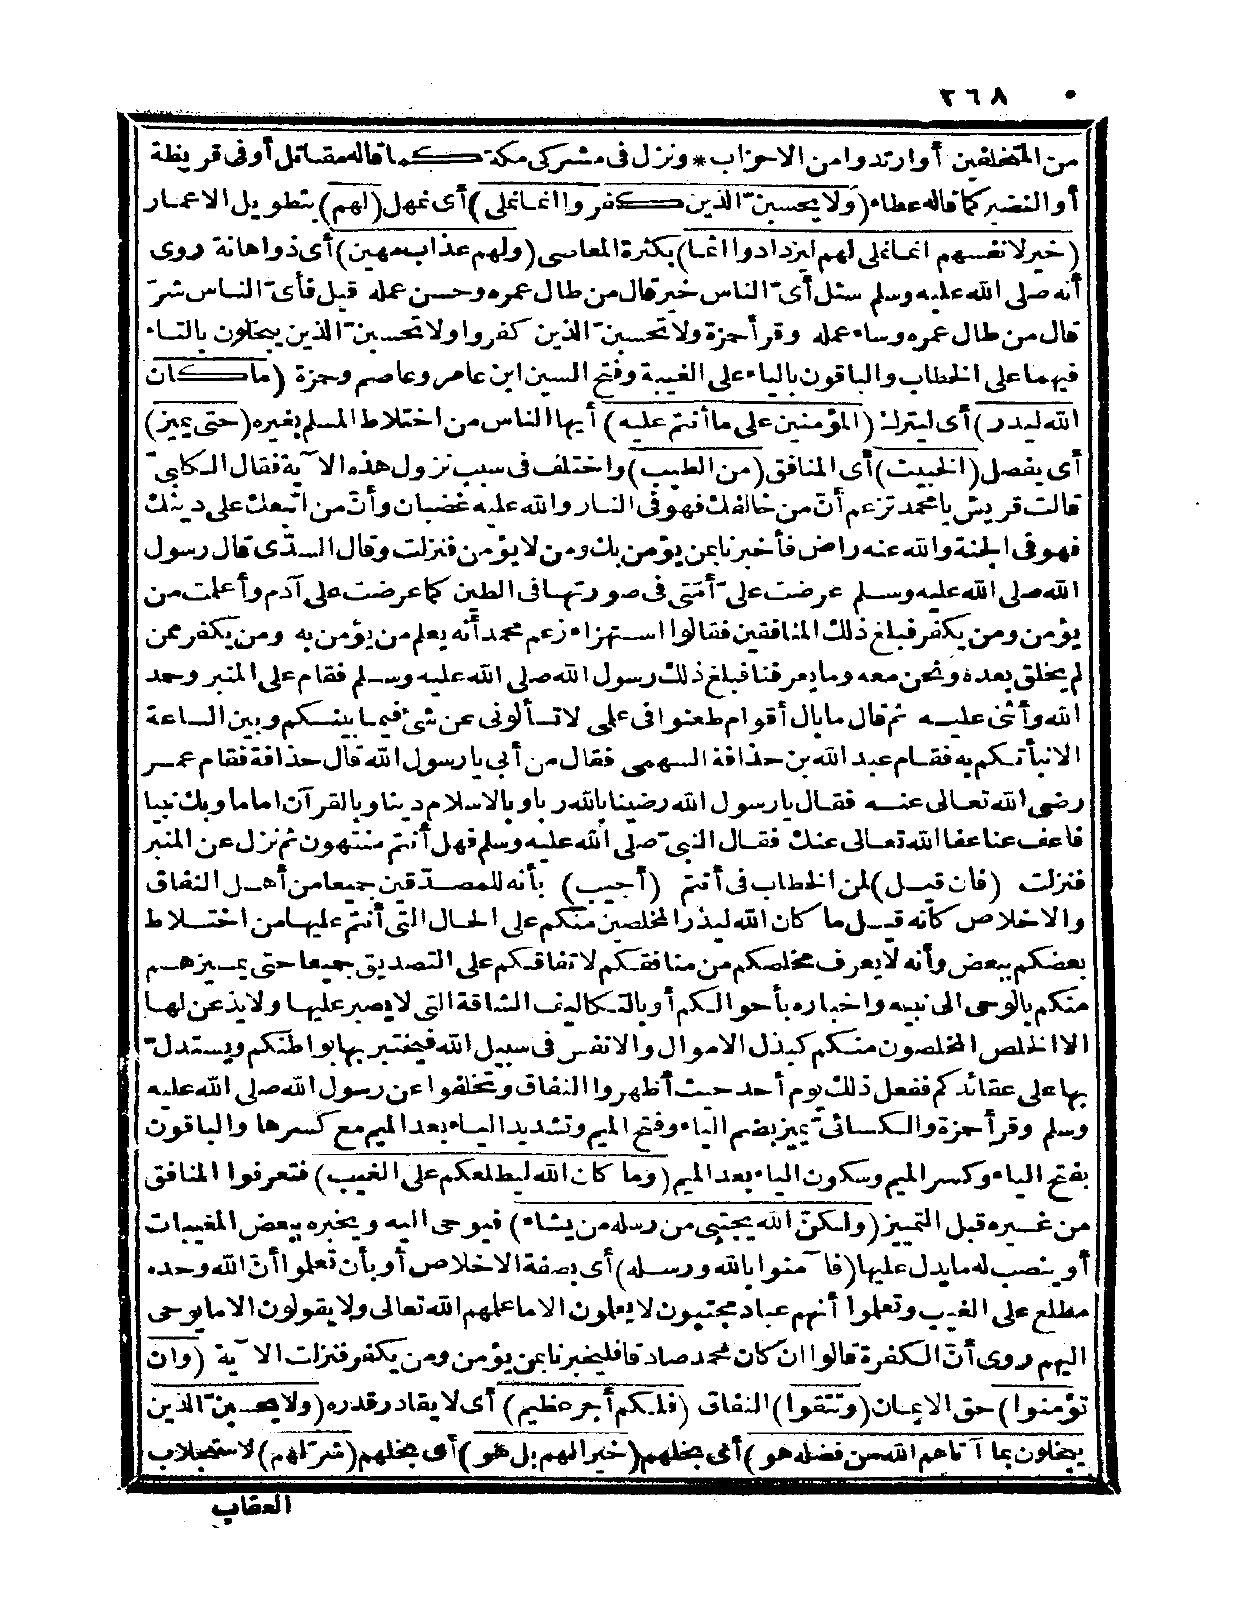 ٢٦٨
من المتخلفين أوارتدوا من الاحزاب * ونزل فى مشركى مكة كما قاله مقاتل أو فى قريظة
أو النضير كما قاله عطاء (ولا يحسبن الذين كفروا انما نملى) أى نمهل (لهم) بتطويل الاعمار
(خير لانفسهم انما نملى لهم ليزدادوا اثما) بكثرة المعاصى (ولهم عذاب مهين) أى ذواهانة روى
أنه صلى الله عليه وسلم سئل أىّ الناس خير قال من طال عمره وحسن عمله قيل فأىّ الناس شرّ
قال من طال عمره وساء عمله وقرأ حمزة ولا تحسبنّ الذين كفروا ولا تحسبنّ الذين يبخلون بالتاء
فيهما على الخطاب والباقون بالياء على الغيبة وفتح السين ابن عامر وعاصم وحمزة (ما كان
الله ليذر) أى ليترك (المؤمنين على ما أنتم عليه) أيها الناس من اختلاط المسلم بغيره (حتى يميز)
أى يفصل (الخبيث) أى المنافق (من الطيب) واختلف فى سبب نزول هذه الآية فقال الكلبىّ
قالت قريش يا محمد تزعم أنّ من خالفك فهو فى النار والله عليه غضبان وأنّ من اتبعك على دينك
فهو فى الجنة والله عنه راض فأخبرنا بمن يؤمن بك ومن لا يؤمن فنزلت وقال السدّى قال رسول
الله صلى الله عليه وسلم عرضت علىّ أمّتى فى صورتها فى الطين كما عرضت على آدم وأعلمت من
يؤمن ومن يكفر فبلغ ذلك المنافقين فقالوا استهزاء زعم محمد أنه يعلم من يؤمن به ومن يكفر ممن
لم يخلق بعده ونحن معه وما يعرفنا فبلغ ذلك رسول الله صلى الله عليه وسلم فقام على المنبر وحمد
الله وأثنى عليه ثم قال ما بال أقوام طعنوا فى علمى لا تسألونى عن شئ فيما بينكم وبين الساعة
الا نبأتكم به فقام عبد الله بن حذافة السهمى فقال من أبى يا رسول الله قال حذافة فقام عمر
رضى الله تعالى عنه فقال يا رسول الله رضينا بالله ربا وبالاسلام دينا وبالقرآن اماما وبك نبيا
فاعف عنا عفا الله تعالى عنك فقال النبىّ صلى الله عليه وسلم فهل أنتم منتهون ثم نزل عن المنبر
فنزلت (فان قيل) لمن الخطاب فى أنتم (أجيب) بأنه للمصدّقين جميعا من أهل النفاق
والاخلاص كأنه قيل ما كان الله ليذر المخلصين منكم على الحال التى أنتم عليها من اختلاط
بعضكم ببعض وأنه لا يعرف مخلصكم من منافقكم لاتفاقكم على التصديق جميعا حتى يميزهم
منكم بالوحى الى نبيه واخباره بأحوالكم أو بالتكاليف الشاقة التى لا يصبر عليها ولا يذعن لها
الا الخلص المخلصون منكم كبذل الاموال والانفس فى سبيل الله فيختبر بها بواطنكم ويستدلّ
بها على عقائدكم ففعل ذلك يوم أحد حيث أظهروا النفاق وتخلفوا عن رسول الله صلى الله عليه
وسلم وقرأ حمزة والكسائىّ يميز بضم الياء وفتح الميم وتشديد الياء بعد الميم مع كسرها والباقون
بفتح الياء وكسر الميم وسكون الياء بعد الميم (وما كان الله ليطلعكم على الغيب) فتعرفوا المنافق
من غيره قبل التمييز (ولكنّ الله يجتبى من رسله من يشاء) فيوحى اليه ويخبره ببعض المغيبات
أو ينصب له ما يدل عليها (فآمنوا بالله ورسله) أى بصفة الاخلاص أو بأن تعلموا أنّ الله وحده
مطلع على الغيب وتعلموا أنهم عباد مجتبون لا يعلمون الا ما علمهم الله تعالى ولا يقولون الا ما يوحى
اليهم روى أنّ الكفرة قالوا ان كان محمد صادقا فليخبرنا بمن يؤمن ومن يكفر فنزلت الآية (وان
تؤمنوا) حق الايمان (وتتقوا) النفاق (فلكم أجر عظيم) أى لا يقادر قدره (ولا يحسبنّ الذين
يبخلون بما آتاهم الله من فضله هو) أى بخلهم (خيرا لهم بل هو) أى بخلهم (شرّ لهم) لاستجلاب
العقاب